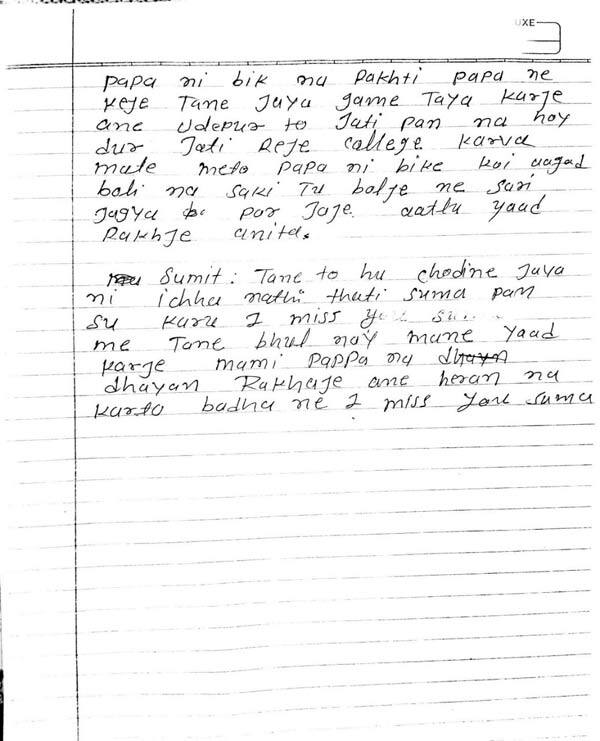 UXE
papa ni bik na Rakhti papa ne
keje Tane Jaya game Taya karje
ane Udepur to Jati pan na hoy
dur Jati Reje callege karva
mate meto papa ni bike koi aagad
boli na saki Tu bolje ne sari
Jagya par Jaje. aatlu yaad
Rakhje anita.
Sumit : Tane to hu chodine Java
ni ichha nathi thati suma pan
su karu I miss you
me Tane bhul nay mane yaad
karje mami pappa na
dhayan Rakhaje ane heran na
karto badha ne I miss you suma